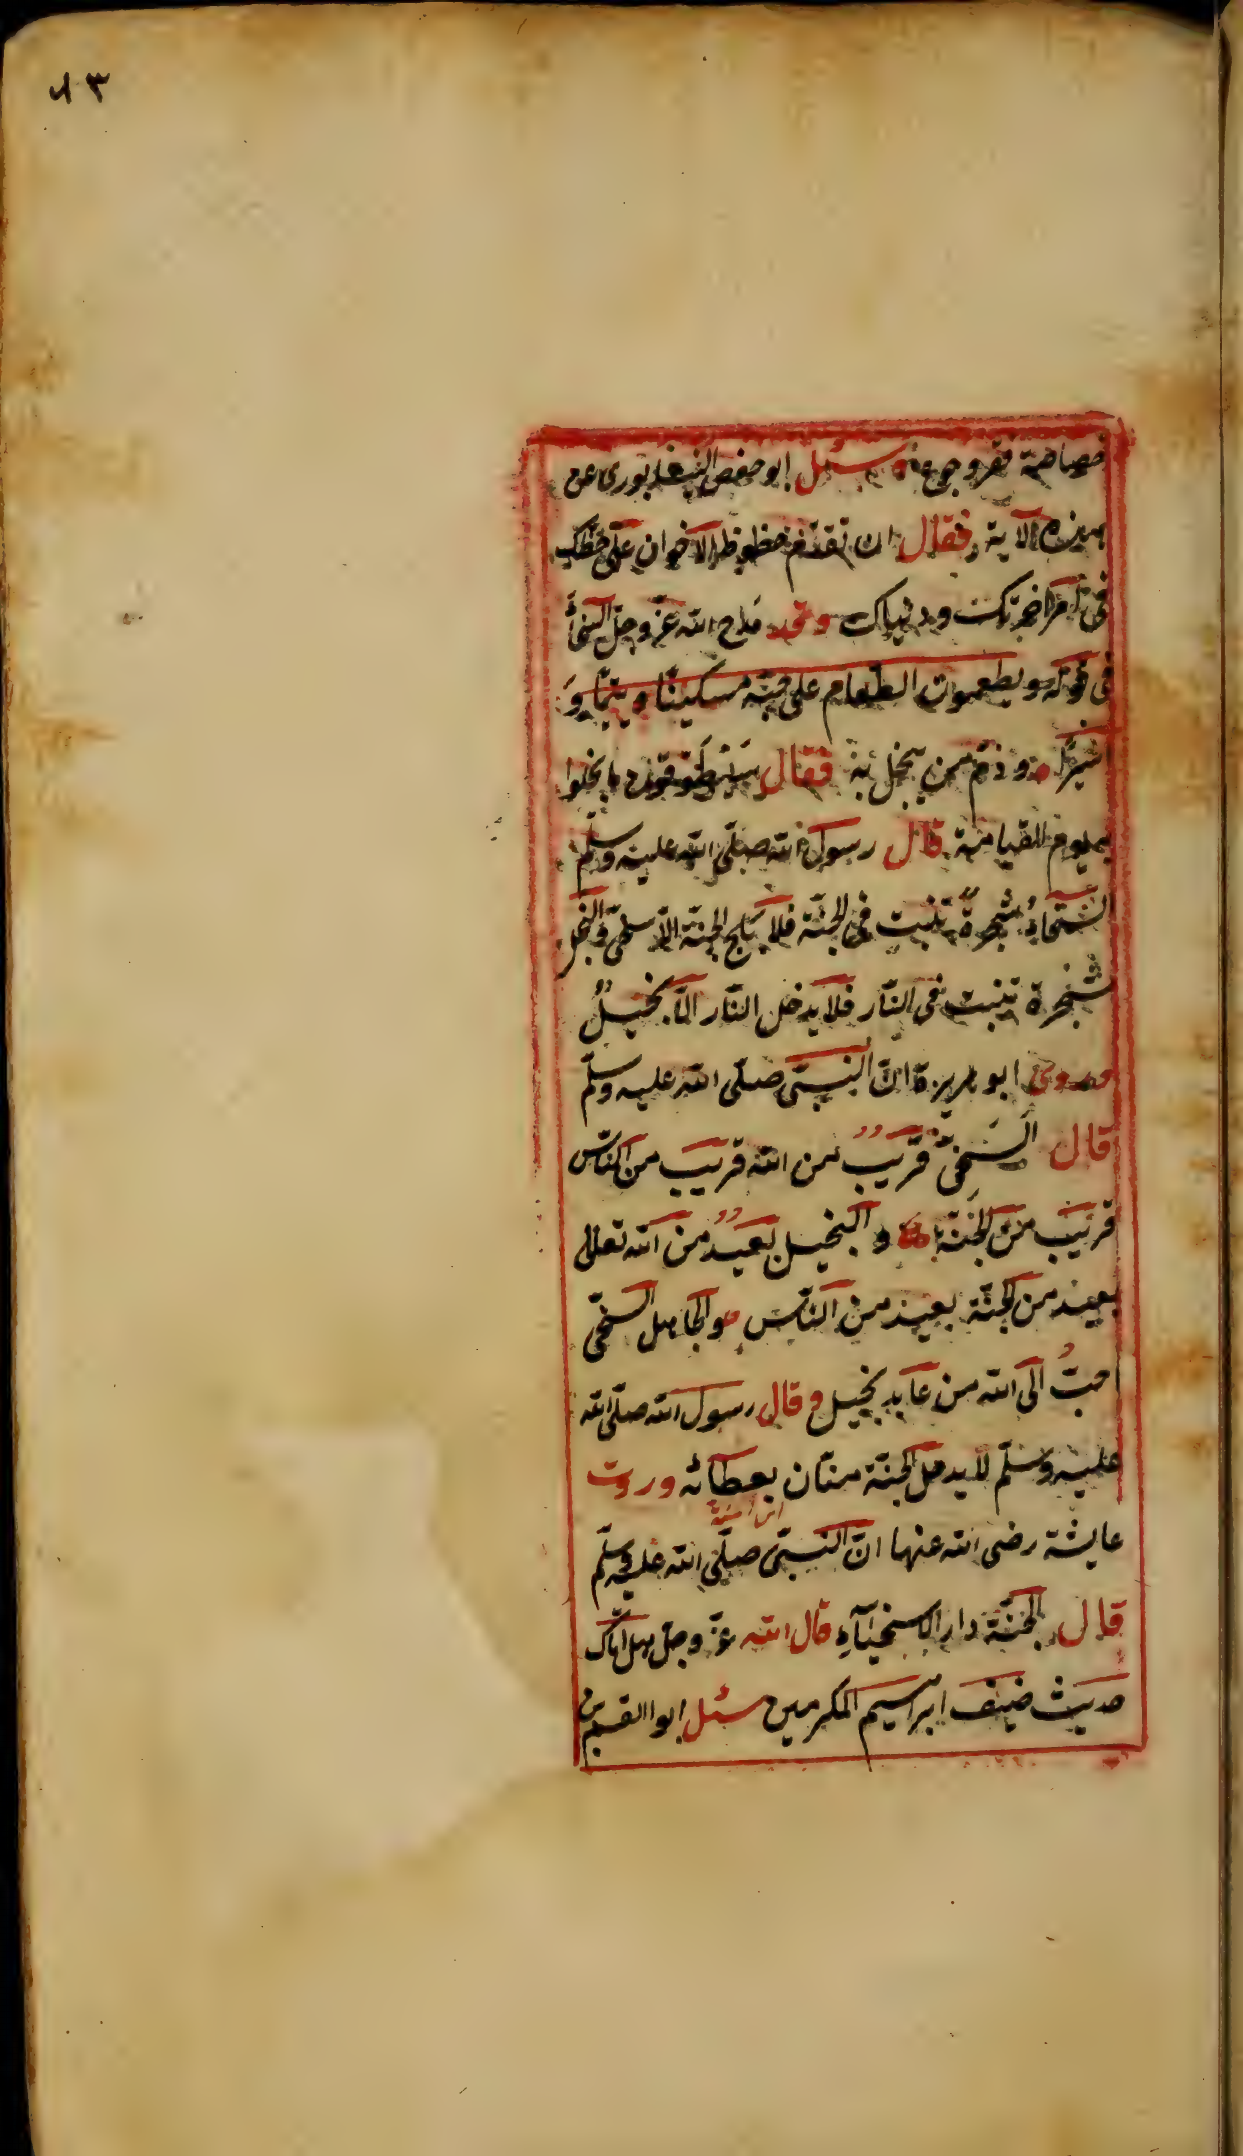 ٨٣
خصاصة فقر وجوع وسئل ابو حفص النيسابورى عن
هذه الآية فقال ان تقدم حظوظ الاخوان على حظك
فى امر اخرتك ودنياك وقد مدح الله عزّ وجلّ السخاء
فى قوله ويطعمون الطّعام على حبّه مسكينًا ويتيمًا وَ
اسيرًا وذمّ من يبخل به فقال سيطوّقون ما بخلوا
به يوم القيامة قال رسول الله صلّى الله عليه وسلّم
السّخاءُ شجرةٌ تنبت فى الجنّة فلا يلج الجنة الّا سخىّ والبخل
شجرة تنبت فى النّار فلا يدخل النّار الّا بخيلٌ
وروى ابو هريرة انّ النبىّ صلّى الله عليه وسلّم
قال السّخىّ قريبٌ من الله قريب من النّاس
قريب من الجنّة والبخيل بعيدٌ من الله تعالى
بعيد من الجنّة بعيد من النّاس والجاهل السخّى
احبّ الى الله من عابد بخيل وقال رسول الله صلّى الله
عليه وسلّم لا يدخل الجنّة منّان بعطائه وروت
عايشة رضى الله عنها انّ النبىّ صلّى الله عليه وسلّم
قال الجنّة دار الاسخيآء قال الله عزّ وجلّ هل اتاك
حديث ضيف ابراهيم المكرمين سئل ابوا القسم بن